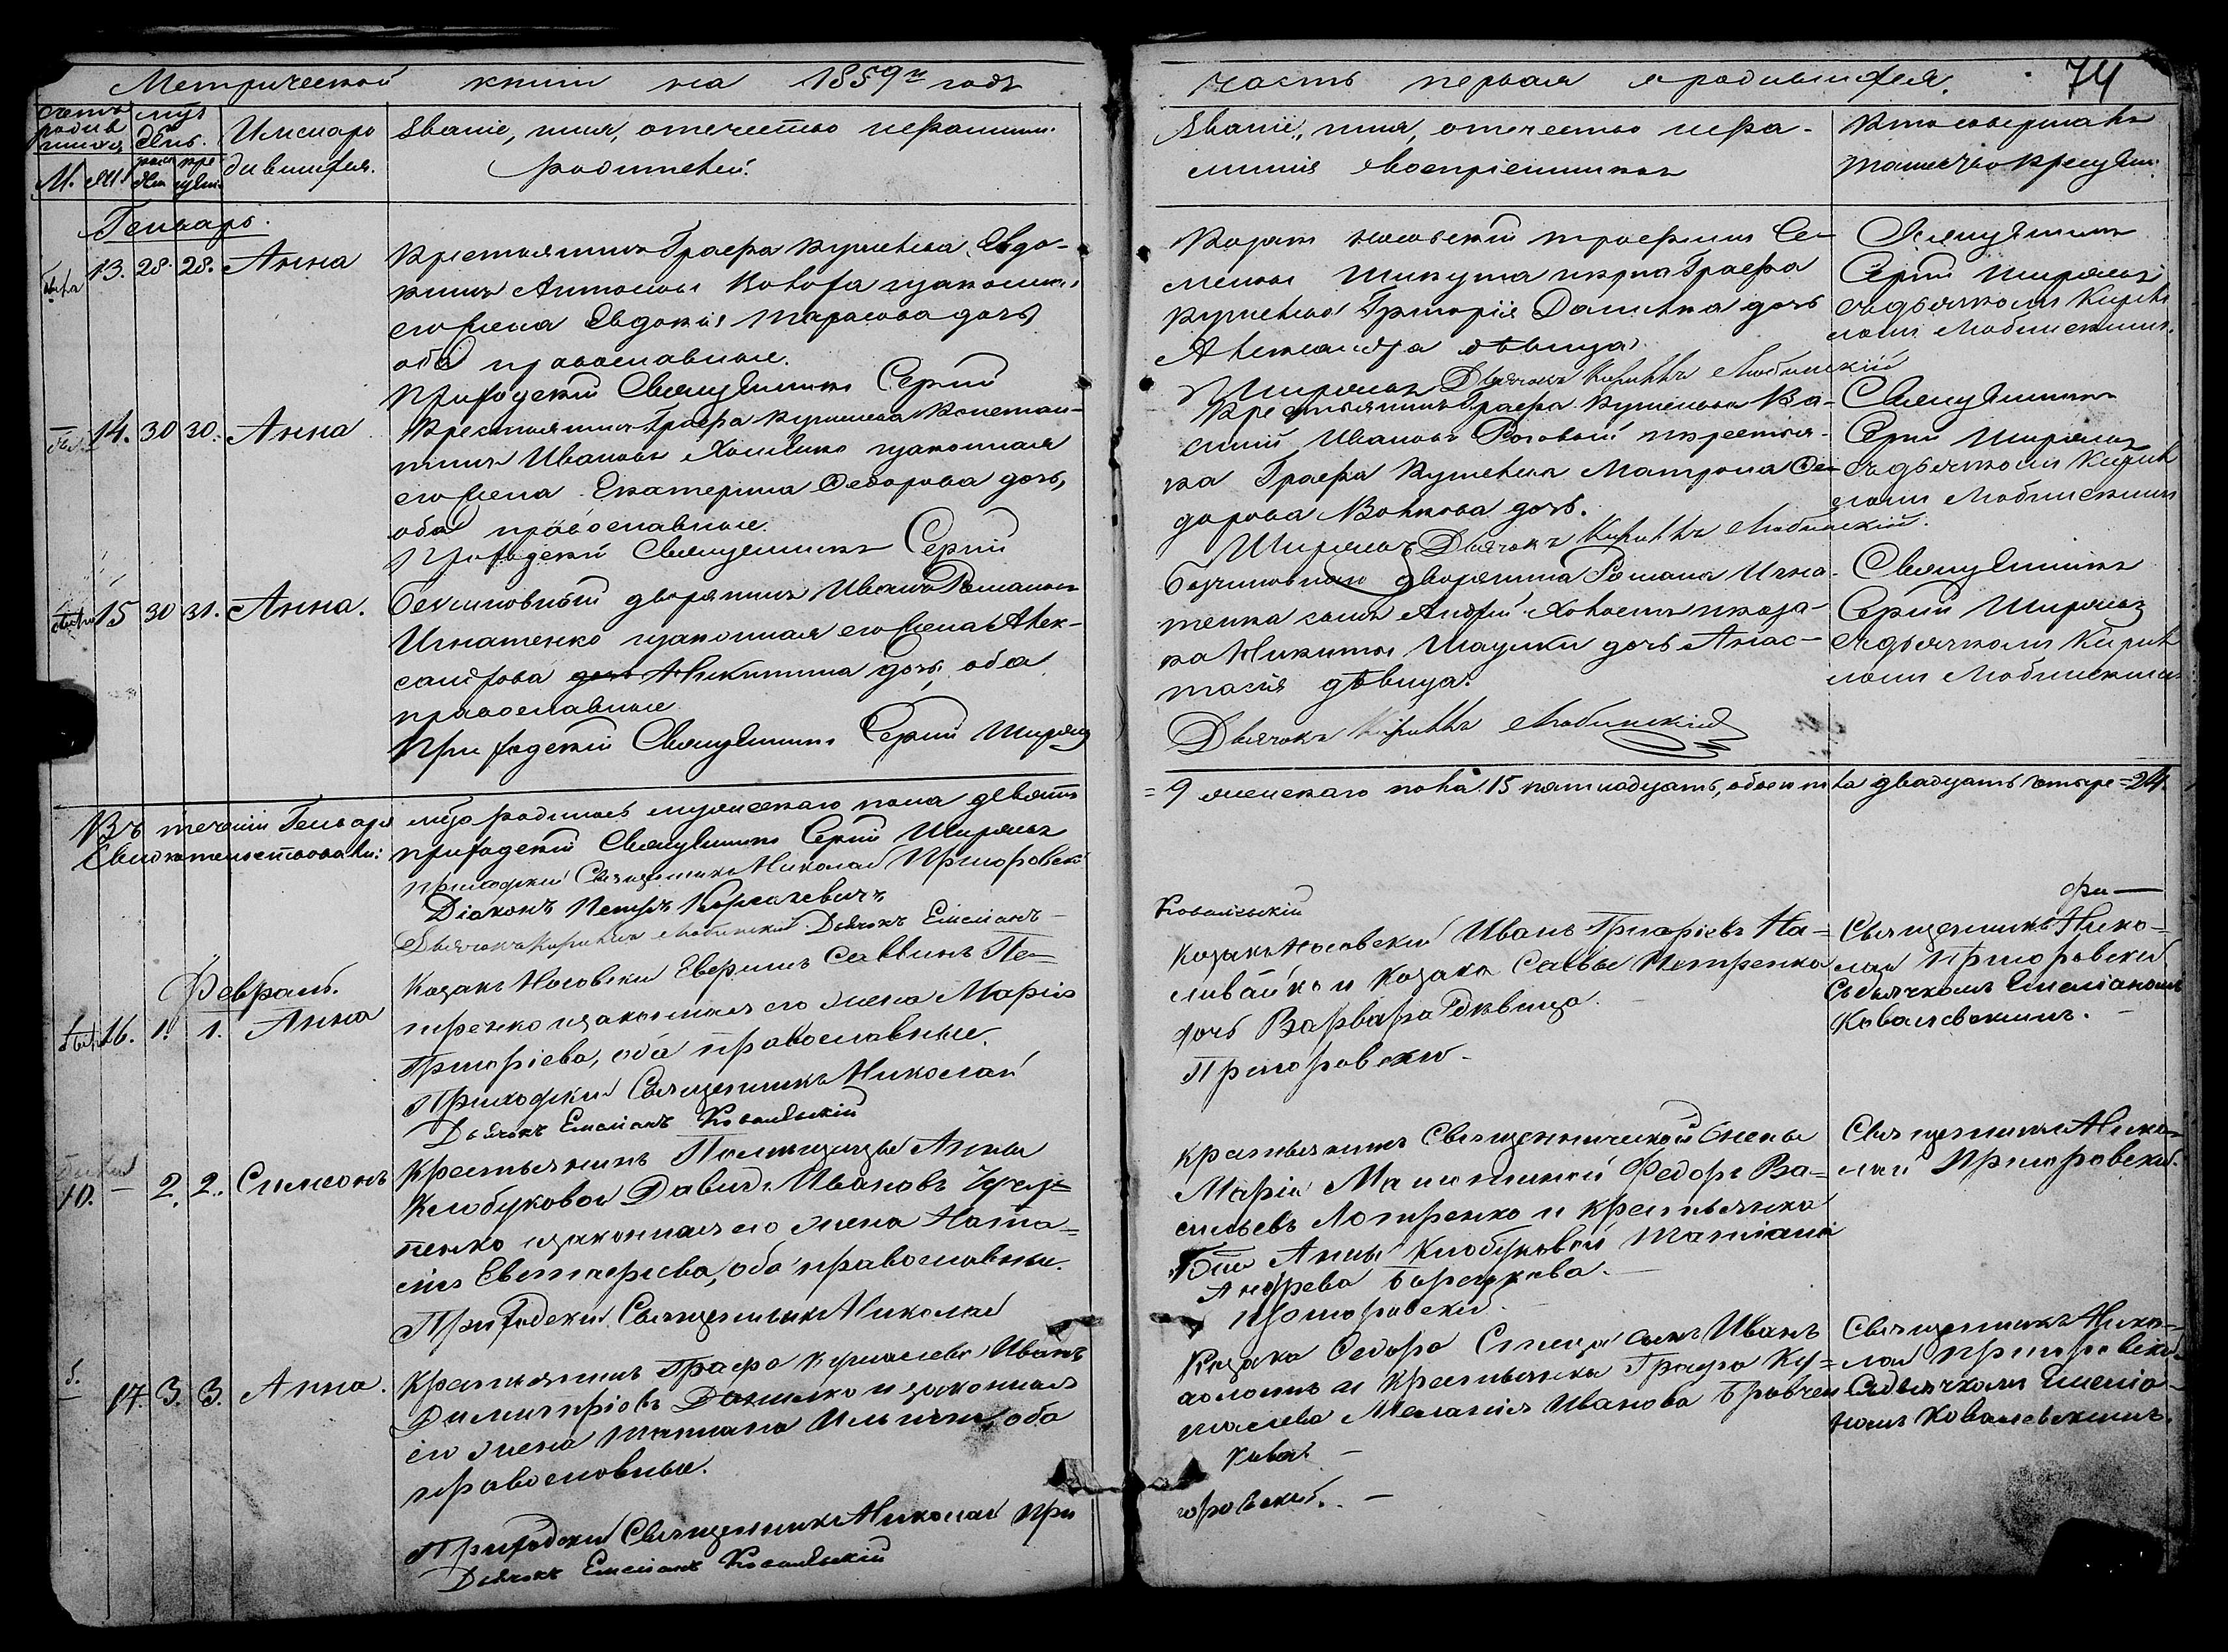 Метрической книги на 1859й годъ
часть первая о родившихся.
74
Счетъ родившихся
М. Ж.
мцъ день.
рожденія крещенія
Имена родившихся.
Званіе, имя, отечество и фамилія
родителей.
Званіе, имя, отечество и фа-
милія воспріемниковъ
Кто совершалъ
таинство крещенія
Генварь.
13. 28. 28. Анна
Крестьянинъ Графа Кушелева Евдо-
кимъ Антоновъ законная
его жена Евдокія Тарасова дочь
оба православные.
Приходскій Священникъ Сергій
Козакъ Носовскій Трофимъ Се-
меновъ Шикута и крест. Графа
Кушелева Григорія Данилка дочь
Александра дѣвица
Ширяевъ Дьячокъ Кириллъ Любинскій
Священникъ
Сергій Ширяевъ
съ дьячкомъ Кирил-
ломъ Любинскимъ.
14. 30 30. Анна
Крестьянинъ Графа Кушелева Констан-
тинъ Ивановъ законная
его жена Екатерина Федорова дочь,
оба православные.
Приходскій Священникъ Сергій
Крестьянинъ Графа Кушелева Ва-
силій Ивановъ Роговый и крестьян-
ка Графа Кушелева Матрона Фе-
дорова Волкова дочь.
Ширяевъ Дьячокъ Кириллъ Любинскій.
Священникъ
Сергій Ширяевъ
съ дьячкомъ Кирил-
ломъ Любинскимъ
15 30 31. Анна.
Безчиновный дворянинъ Иванъ Романовъ
Игнатенко и законная его жена Алек-
сандрова дочь Никитина дочь, оба
православные
Приходскій Священникъ Сергій Ширяевъ
безчиновнаго дворянина Романа Игна-
тенка сынъ Андрей Холостъ и коза-
ка Никиты дочь Анас-
тасія дѣвица.
Дьячокъ Кириллъ Любинскій
Священникъ
Сергій Ширяевъ
съ дьячкомъ Кирил-
ломъ Любинскимъ
Въ теченіи Генваря мца родилось мужескаго пола девять
= 9 женскаго пола 15 пятнадцать, обоего пола двадцать четыре = 24.
Свидѣтельствовали: приходскій Священникъ Сергій Ширяевъ
приходскій Священникъ Николай Пригоровскій
Діаконъ Петръ
Дьячокъ Кириллъ Любинскій Дьячокъ Емеліанъ
Ковалевскій
Февраль.
16. 1. 1. Анна
Козакъ Носовскій Саввинъ Пе-
тренко и законная его жена Марія
Григоріева, оба православные.
Приходскій Священникъ Николай
Дьячокъ Емеліанъ Ковалевскій
Козакъ Носовскій Иванъ Григоріевъ На-
ливайко и Козака Саввы Петренко
дочь Варвара дѣвица.
Пригоровскій
Священникъ Нико-
лай Пригоровскій
Съ дьячкомъ Емеліаномъ
Ковалевскимъ.
10. 2. 2. Симеонъ
Крестьянинъ Помѣщицы Анны
Клобуковой Давидъ Ивановъ
и законная его жена Ната-
лія Евстафіева, оба православные.
Приходскій Священникъ Николай
Крестьянинъ Священнической жены
Маріи Федоръ Ва-
сильевъ и крестьянка
Анны Клобуковой Татіана
Андреева
Пригоровскій.
Священникъ Нико-
лай Пригоровскій.
17. 3. 3. Анна.
Крестьянинъ Графа Кушелева Иванъ
Димитріевъ Данилко и законная
его жена Татіана оба
православные.
Приходскій Священникъ Николай При
Дьячокъ Емеліанъ Ковалевскій
Козака Федора сынъ Иванъ
холостъ и крестьянка Графа Ку-
шелева Меланія Иванова
горовскій.
Священникъ Нико-
лай Пригоровскій
Съ дьячкомъ Емеліа-
номъ Ковалевскимъ.